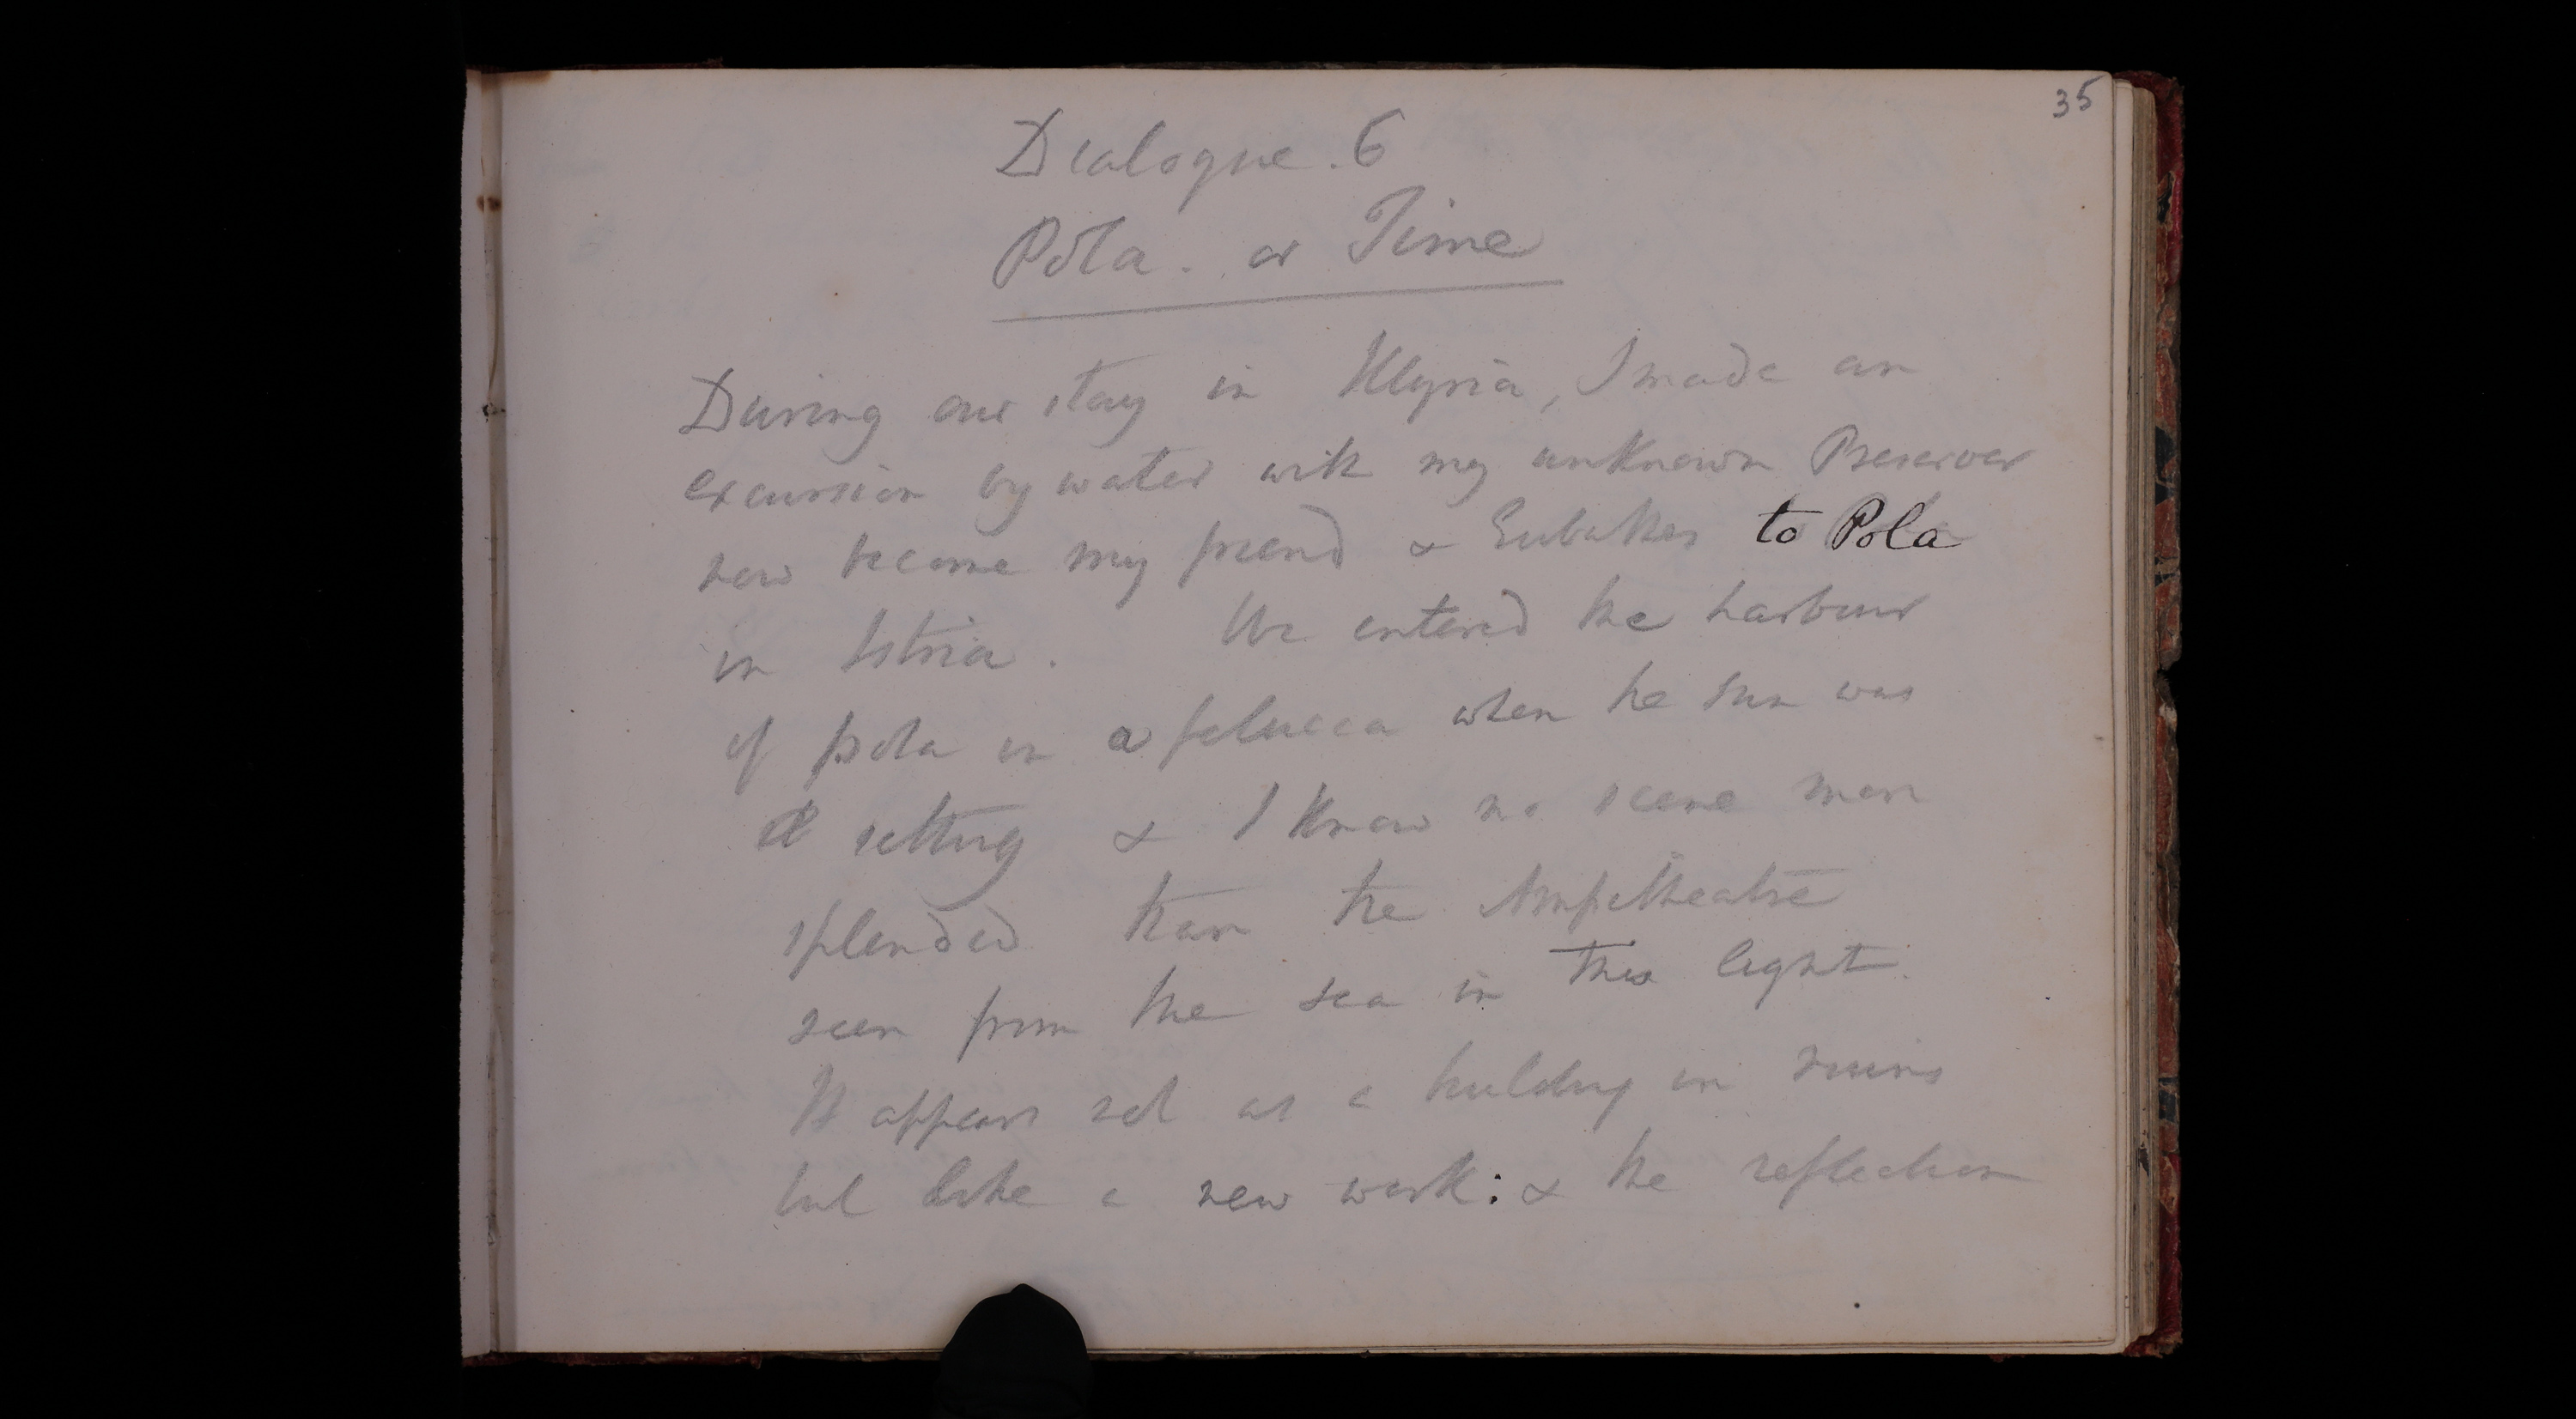 35
Dialogue. 6
Pola. or Time
During our stay in Illyria, I made an
excursion by water with my unknown Preserver
now become my friend & Eubathes to Pola
in Istria. We entered the harbour
of pola in a felucca when the sun was
setting & I know no scene more
splendid than the Ampitheatre
seen from the sea in this light.
It appears not as a building in ruins
but like a new work: & the reflection